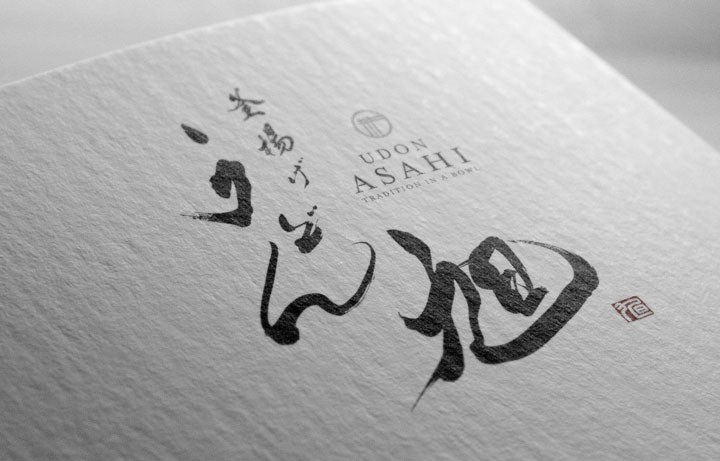 釜揚げ
うどん
UDON
ASAHI
TRADITION IN A BOWL
旭